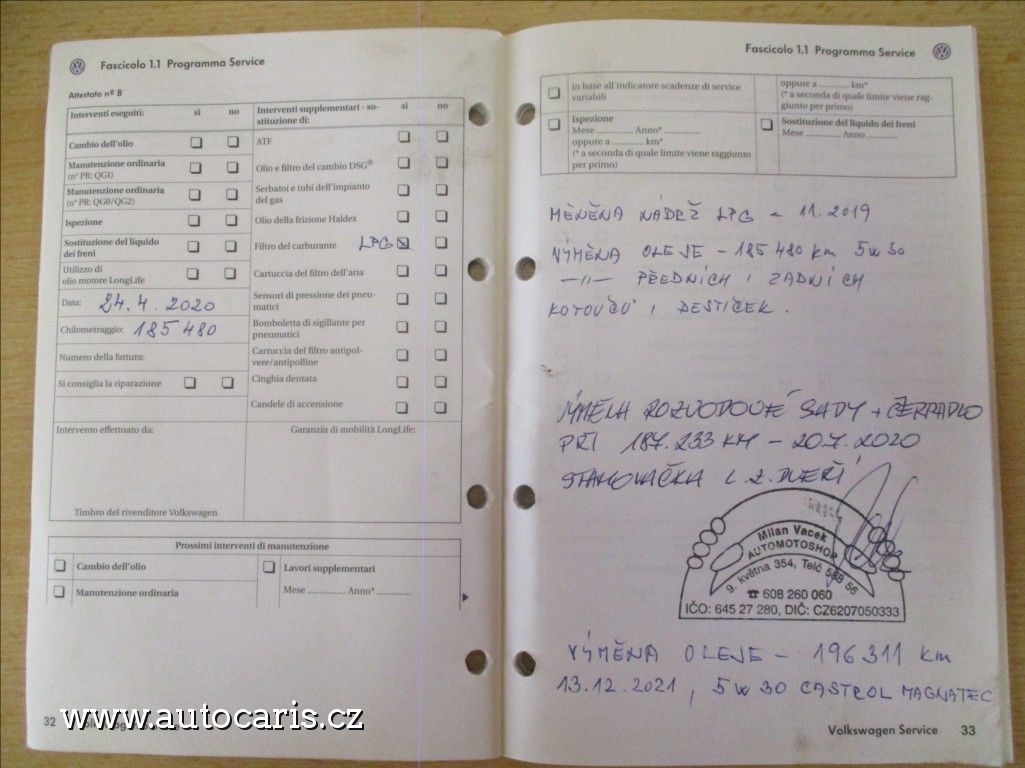 Fascicolo 1.1 Programma Service
Attestato nº 8
Interventi eseguiti: sì no
Cambio dell'olio
Manutenzione ordinaria
(n° PR: QG1)
Manutenzione ordinaria
(n° PR: QG0/QG2)
Ispezione
Sostituzione del liquido
dei freni
Utilizzo di
olio motore LongLife
Data: 24.4.2020
Chilometraggio: 185 480
Numero della fattura:
Si consiglia la riparazione
Interventi supplementari - so-
stituzione di: sì no
ATF
Olio e filtro del cambio DSG®
Serbatoi e tubi dell'impianto
del gas
Olio della frizione Haldex
Filtro del carburante LPG
Cartuccia del filtro dell'aria
Sensori di pressione dei pneu-
matici
Bomboletta di sigillante per
pneumatici
Cartuccia del filtro antipol-
vere/antipolline
Cinghia dentata
Candele di accensione
Intervento effettuato da:
Garanzia di mobilità LongLife:
Timbro del rivenditore Volkswagen
Prossimi interventi di manutenzione
Cambio dell'olio
Manutenzione ordinaria
Lavori supplementari
Mese ............... Anno* ...............
32
www.autocaris.cz
Fascicolo 1.1 Programma Service
in base all'indicatore scadenze di service
variabili
oppure a ............... km*
(* a seconda di quale limite viene rag-
giunto per primo)
Ispezione
Mese ............... Anno* ...............
oppure a ............... km*
(* a seconda di quale limite viene raggiunto
per primo)
Sostituzione del liquido dei freni
Mese ............... Anno ...............
MĚNĚNA NÁDRŽ LPG - 11.2019
VÝMĚNA OLEJE - 185 480 km 5W30
-"- PŘEDNÍCH I ZADNÍCH
KOTOUČŮ I DESTIČEK.
VÝMĚNA ROZVODOVÉ SADY + ČERPADLO
PŘI 187.233 KM - 20.7.2020
STAHOVAČKA L.Z. DVEŘÍ
Milan Vacek
AUTOMOTOSHOP
9. května 354, Telč 588 56
☎ 608 260 060
IČO: 645 27 280, DIČ: CZ6207050333
VÝMĚNA OLEJE - 196311 km
13.12.2021, 5W30 CASTROL MAGNATEC
Volkswagen Service 33